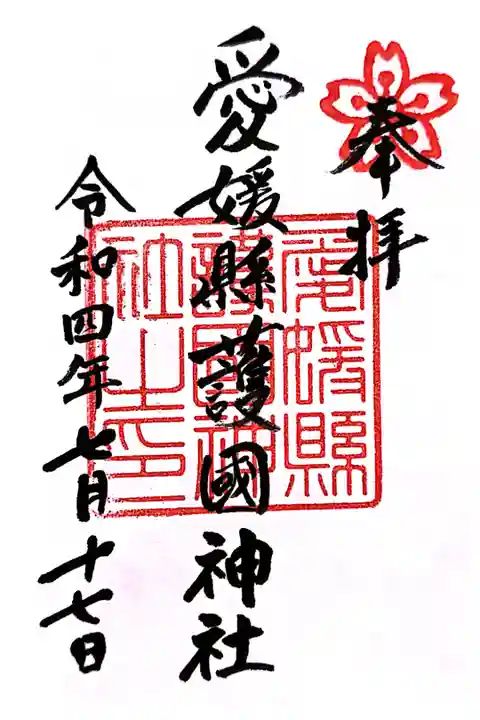 奉拝
愛媛縣護國神社
愛媛縣
護國神
社之印
令和四年七月十七日